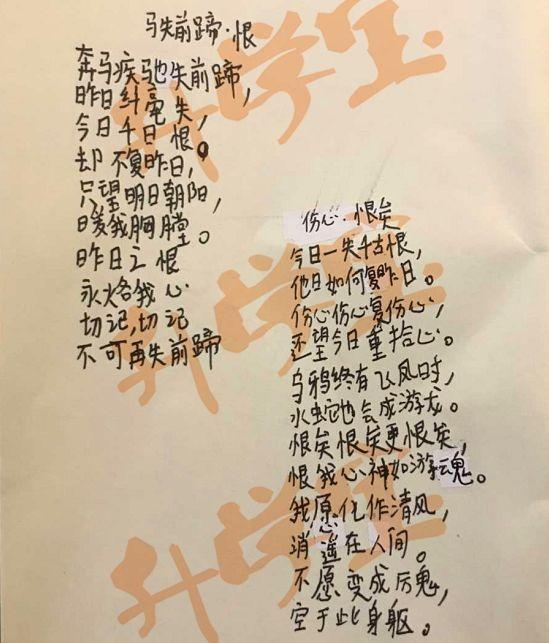 马失前蹄·恨
奔马疾驰失前蹄,
昨日纤毫失,
今日千日恨,
却不复昨日。
只望明日朝阳,
暖我胸膛。
昨日之恨
永烙我心
切记,切记
不可再失前蹄
伤心·恨矣
今日一失千古恨,
他日如何复昨日。
伤心伤心复伤心,
还望今日重拾心。
乌鸦终有飞凤时,
水蛇也会成游龙。
恨矣恨矣更恨矣,
恨我心神如游魂魂。
我愿化作清风,
逍遥在人间。
不愿变成厉鬼,
空于此身躯。
升学宝
升学宝
升学宝